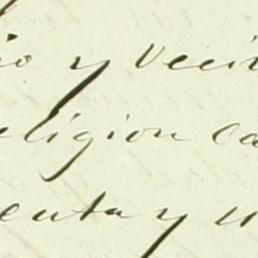 io y veci
eligion ca
enta y u